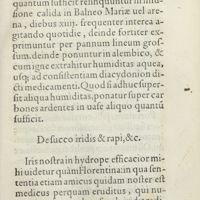 quantum sufficit relinquūtur in infu-
sione calida in Balneo Mariæ uel are-
na, diebus xiiij. frequenter interea a-
gitando quotidie, deinde fortiter ex-
primuntur per pannum lineum gros-
sum. deinde ponuntur in alembico, &
cum igne extrahitur humiditas aquea,
usq; ad consistentiam diacydonion di-
cti medicamenti. Quod si adhuc super-
sit aliqua humiditas, ponatur super car-
bones ardentes in uase aliquo quantū
sufficit.
De succo iridis & rapi, &c.
Iris nostra in hydrope efficacior mi-
hi uidetur quàm Florentina: in qua sen-
tentia etiam amicus quidam noster est
medicus perquam eruditus, qui nu-